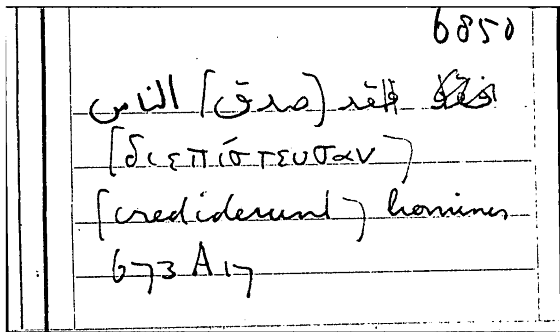 6850
فلقد [صدق] الناس
[διεπίστευσαν]
[crediderunt] homines
673 A 17